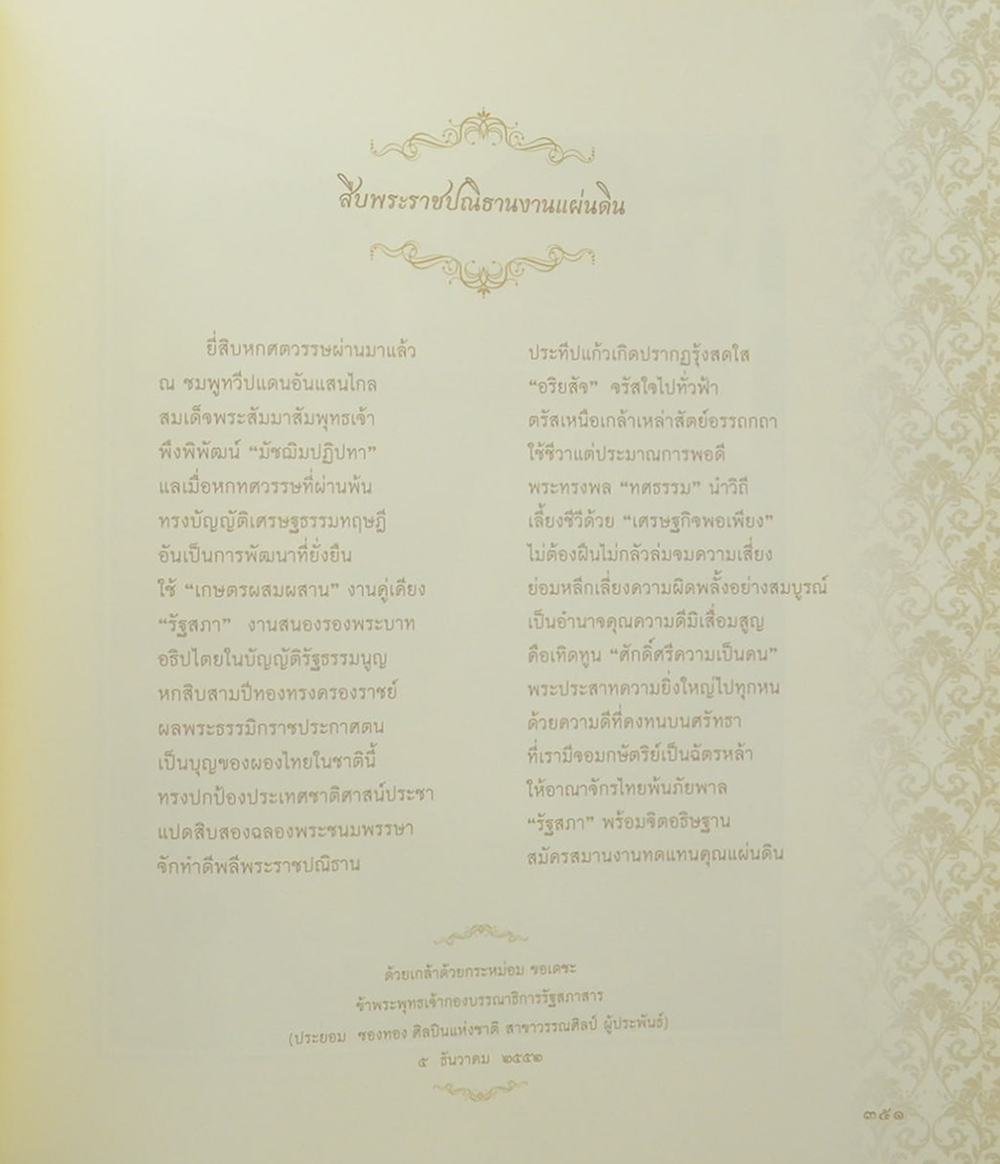 สืบพระราชปณิธานงานแผ่นดิน
ยี่สิบหกศตวรรษผ่านมาแล้ว ประทีปแก้วเกิดปรากฏรุ้งสดใส
ณ ชมพูทวีปแดนอันแสนไกล “อริยสัจ” จรัสใจไปทั่วฟ้า
สมเด็จพระสัมมาสัมพุทธเจ้า ตรัสเหนือเกล้าเหล่าสัตย์อรรถกถา
พึงพิพัฒน์ “มัชฌิมปฏิปทา” ใช้ชีวาแต่ประมาณการพอดี
แลเมื่อหกทศวรรษที่ผ่านพ้น พระทรงพล “ทศธรรม” นำวิถี
ทรงบัญญัติเศรษฐธรรมทฤษฎี เลี้ยงชีวีด้วย “เศรษฐกิจพอเพียง”
อันเป็นการพัฒนาที่ยั่งยืน ไม่ต้องฝืนไม่กลัวล่มจมความเสี่ยง
ใช้ “เกษตรผสมผสาน” งานคู่เคียง ย่อมหลีกเลี่ยงความผิดพลั้งอย่างสมบูรณ์
“รัฐสภา” งานสนองรองพระบาท เป็นอำนาจคุณความดีมิเสื่อมสูญ
อธิปไตยในบัญญัติรัฐธรรมนูญ คือเทิดทูน “ศักดิ์ศรีความเป็นคน”
หกสิบสามปีทองทรงครองราชย์ พระประสาทความยิ่งใหญ่ไปทุกหน
ผลพระธรรมิกราชประกาศตน ด้วยความดีที่คงทนบนศรัทธา
เป็นบุญของผองไทยในชาตินี้ ที่เรามีจอมกษัตริย์เป็นฉัตรหล้า
ทรงปกป้องประเทศชาติศาสน์ประชา ให้อาณาจักรไทยพ้นภัยพาล
แปดสิบสองฉลองพระชนมพรรษา “รัฐสภา” พร้อมจิตอธิษฐาน
จักทำดีพลีพระราชปณิธาน สมัครสมานงานทดแทนคุณแผ่นดิน
ด้วยเกล้าด้วยกระหม่อม ขอเดชะ
ข้าพระพุทธเจ้ากองบรรณาธิการรัฐสภาสาร
(ประยอม ซองทอง ศิลปินแห่งชาติ สาขาวรรณศิลป์ ผู้ประพันธ์)
๕ ธันวาคม ๒๕๕๒
๓๕๑